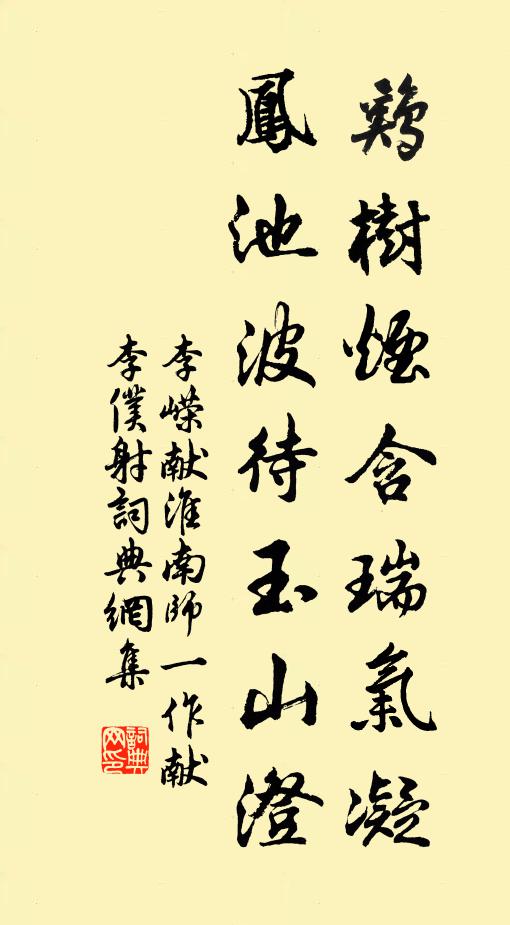 鷄樹煙含瑞氣凝
鳳池波待玉山澄
李嶸献淮南師一作献
李僕射詞典網集
詞典
网印